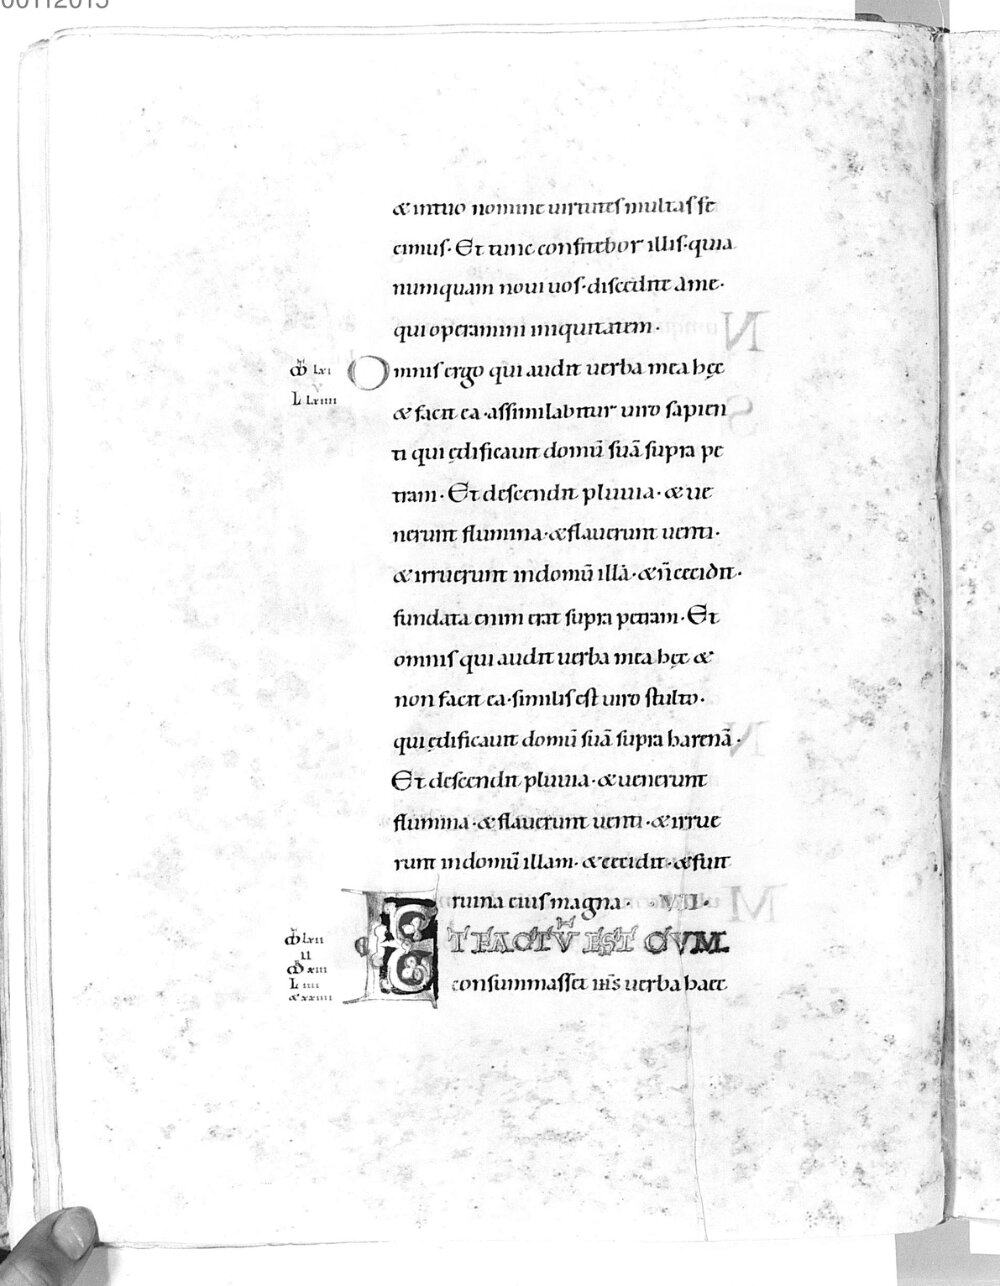 00112015
& intuo nomine uirtutes multas fe
cimus· Et tunc confitebor illis· quia
numquam noui uos· discedite ame·
qui operamini iniquitatem·
Omnis ergo qui audit uerba mea hęc
& facit ea· assimilabitur uiro sapien
ti qui ędificauit domū suā supra pe
tram· Et descendit pluuia· & ue
nerunt flumina· & flauerunt uenti·
& irruerunt indomū illā· & ñ cecidit·
fundata enim erat supra petram· Et
omnis qui audit uerba mea hęc &
non facit ea· similis est uiro stulto·
qui ędificauit domū suā supra harenā·
Et descendit pluuia· & uenerunt
flumina· & flauerunt uenti· & irrue
runt indomū illam· & cecidit· & fuit
ruina eius magna· ·VII·
ET FACTŪ EST CVM
consummasset ih̄s uerba haec
LXI
L LXIIII
LXII
II
XIII
L IIII
& XXIIII